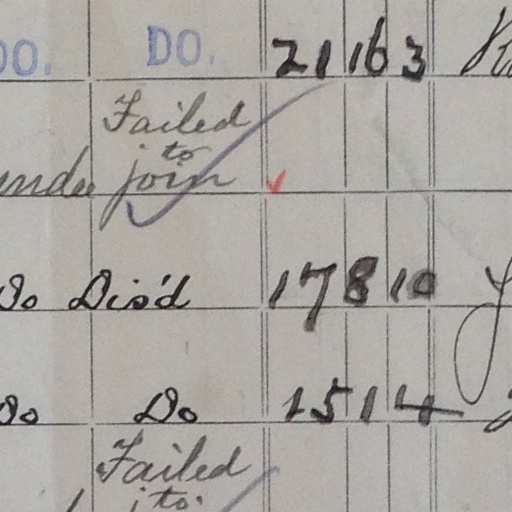 DO. DO. 21 16 3
Failed
to
join
Do Dis'd 17 8 10
Do Do 15 1 4
Failed
to.